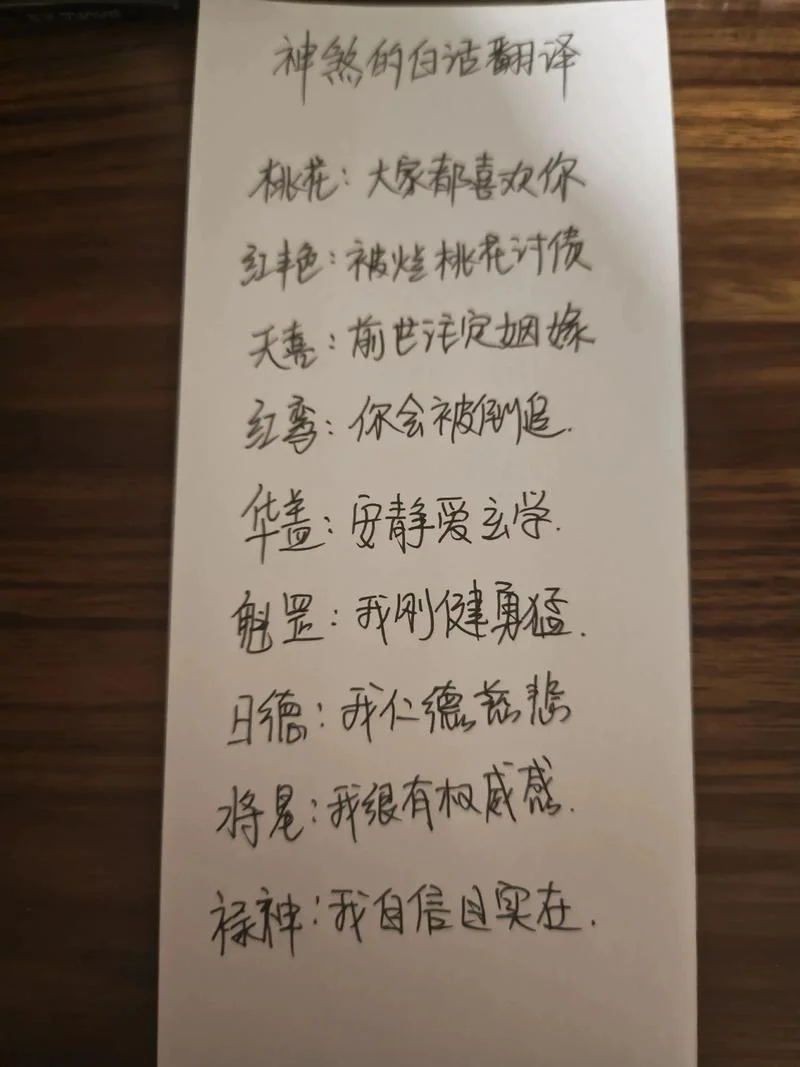 神煞的白话翻译
桃花：大家都喜欢你
红艳：被烂桃花讨债
天喜：前世注定姻缘
红鸾：你会被倒追.
华盖：安静爱玄学.
魁罡：我刚健勇猛.
日德：我仁德慈悲
将星：我很有权威感.
禄神：我自信且实在.